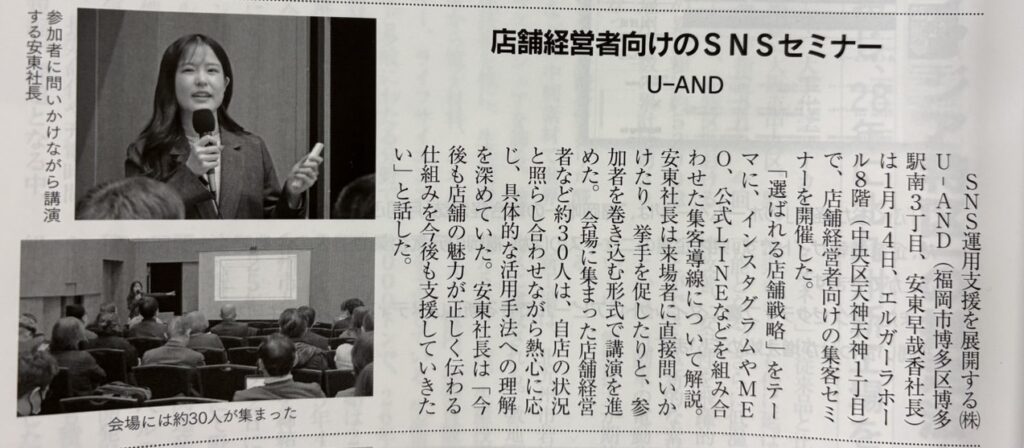 店舗経営者向けのSNSセミナー
U−AND
SNS運用支援を展開する㈱
U−AND（福岡市博多区博多
駅南3丁目、安東早哉香社長）
は1月14日、エルガーラホー
ル8階（中央区天神天神1丁目）
で、店舗経営者向けの集客セミ
ナーを開催した。
「選ばれる店舗戦略」をテー
マに、インスタグラムやME
O、公式LINEなどを組み合
わせた集客導線について解説。
安東社長は来場者に直接問いか
けたり、挙手を促したりと、参
加者を巻き込む形式で講演を進
めた。会場に集まった店舗経営
者など約30人は、自店の状況
と照らし合わせながら熱心に応
じ、具体的な活用手法への理解
を深めていた。安東社長は「今
後も店舗の魅力が正しく伝わる
仕組みを今後も支援していきた
い」と話した。
参加者に問いかけながら講演
する安東社長
会場には約30人が集まった